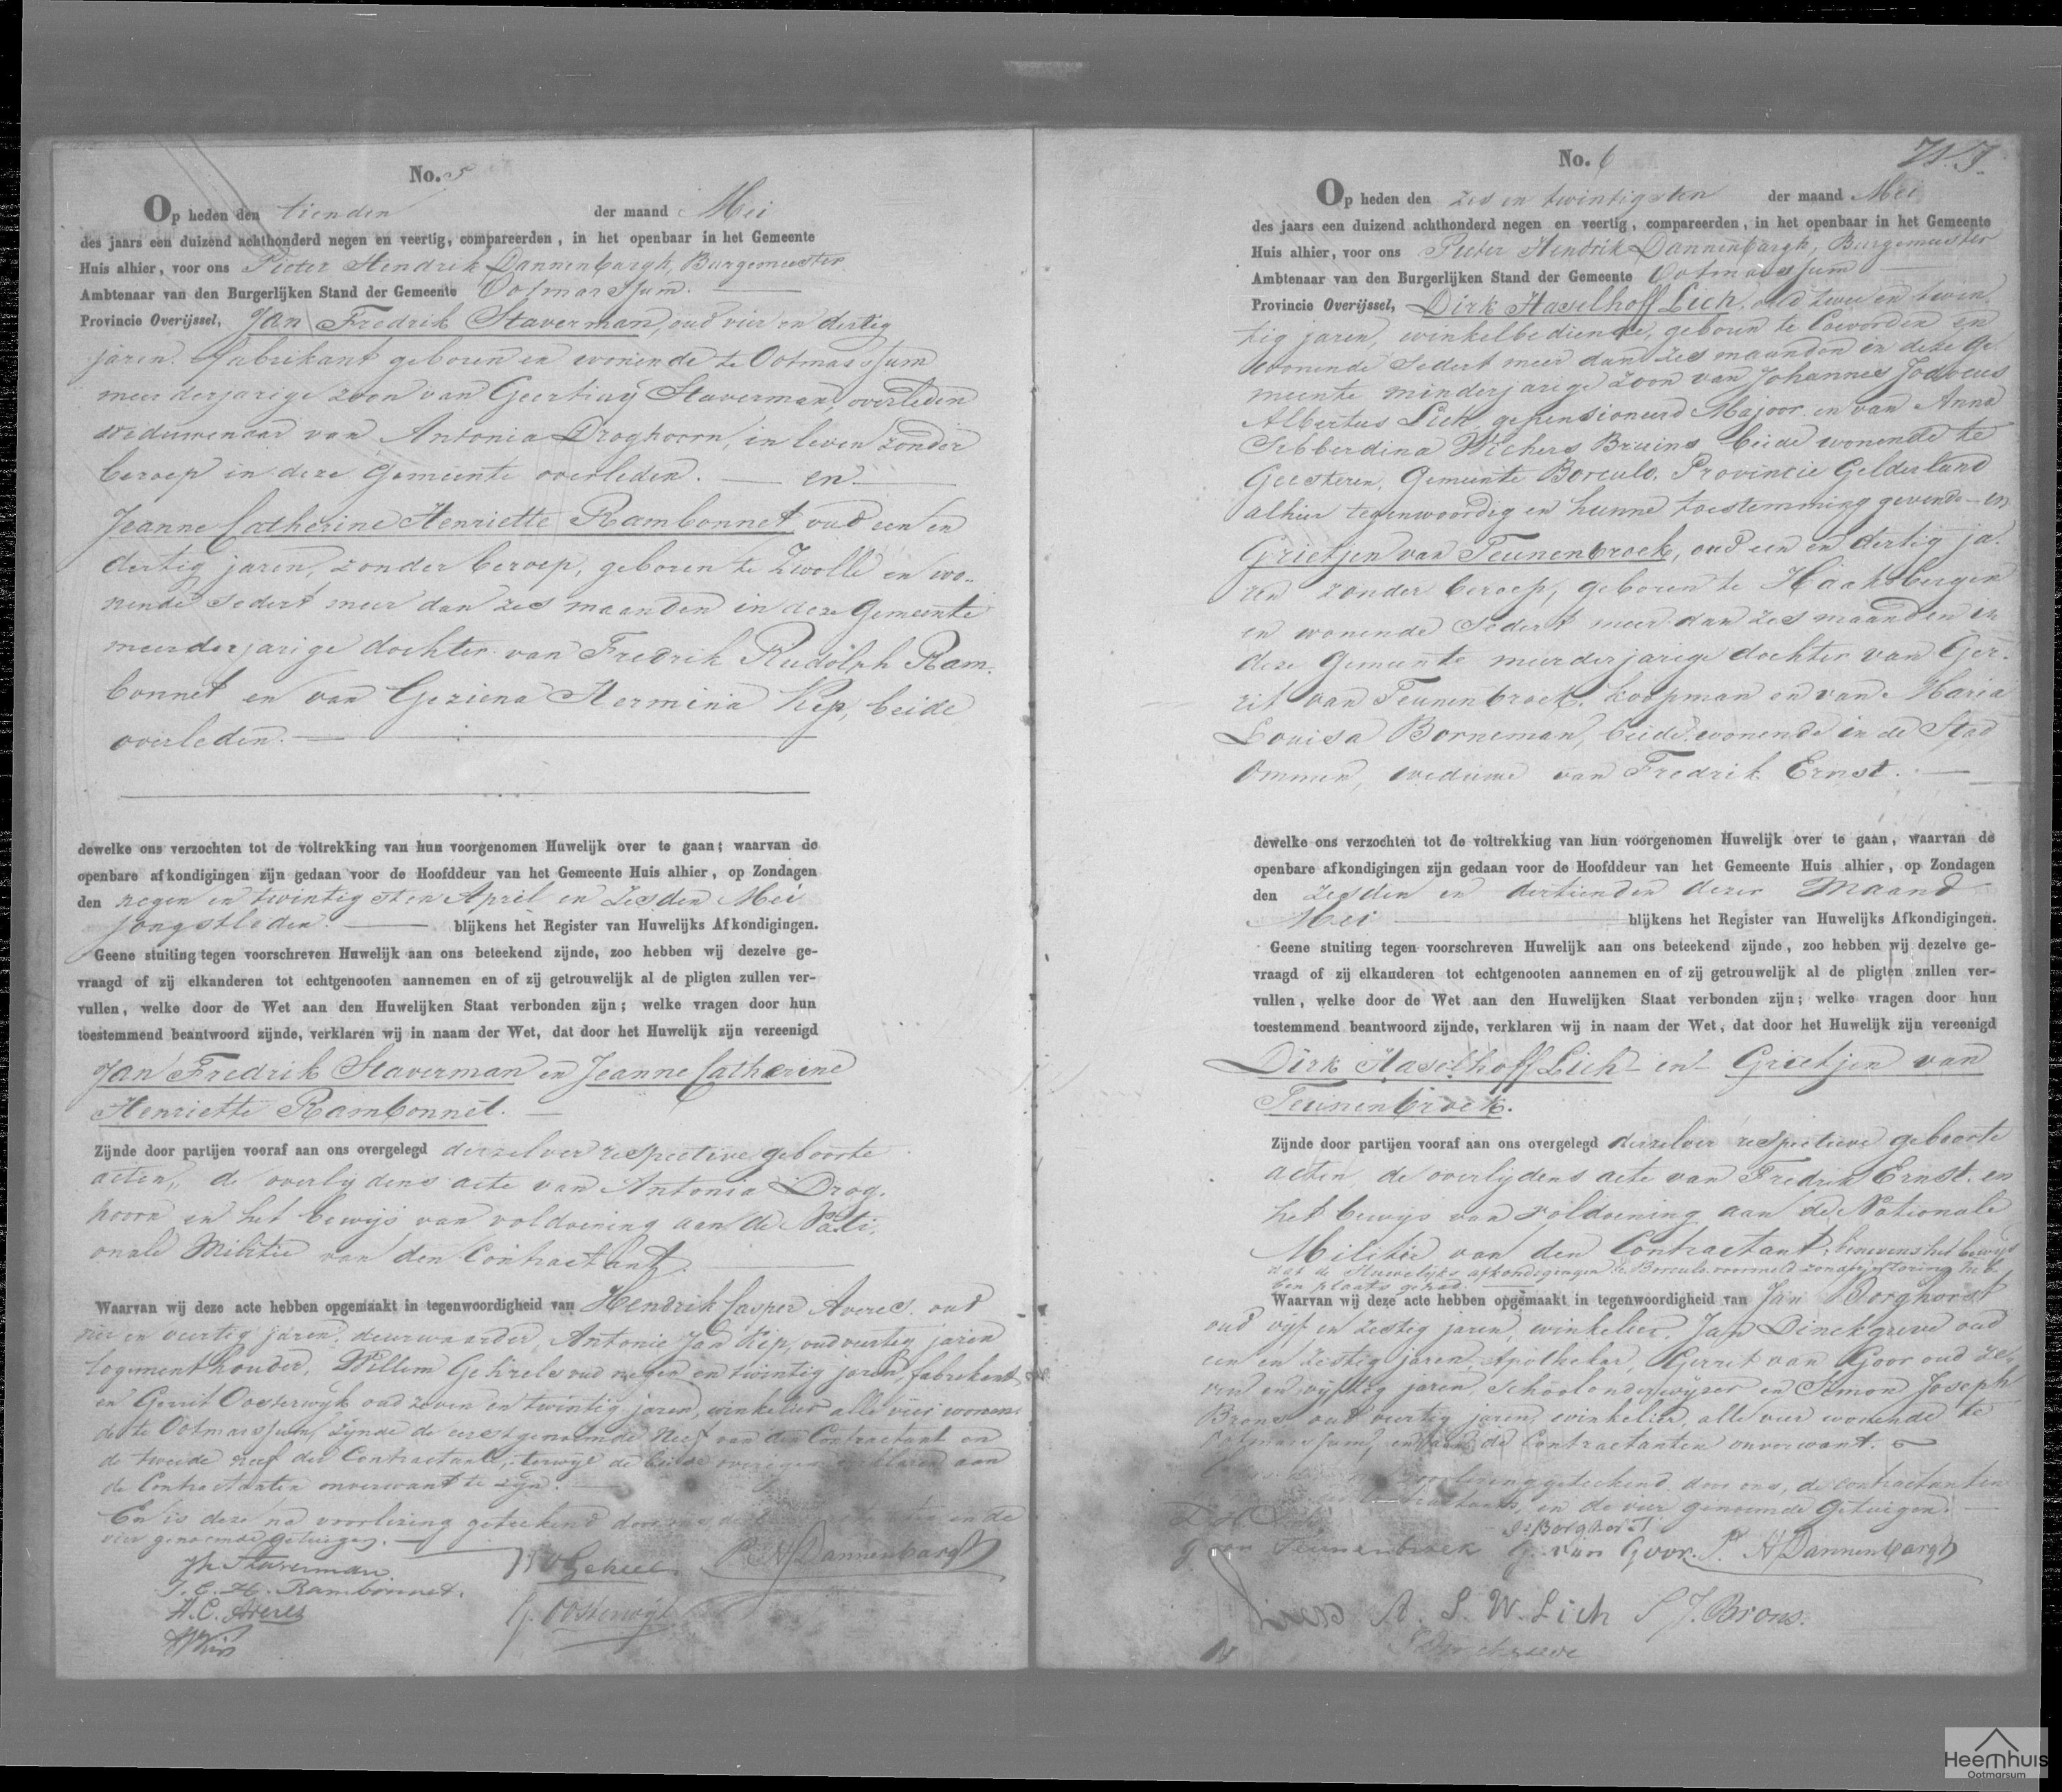 No. 5
Op heden den tienden der maand Mei
des jaars een duizend achthonderd negen en veertig, compareerden, in het openbaar in het Gemeente
Huis alhier, voor ons Pieter Hendrik Dannenbargh, Burgemeester
Ambtenaar van den Burgerlijken Stand der Gemeente Ootmarssum.
Provincie Overijssel, Jan Fredrik Staverman, oud vier en dertig
jaren. fabrikant geboren en wonende te Ootmarssum
meerderjarige zoon van Staverman, overleden
weduwenaar van Antonia Droghoorn, in leven zonder
beroep in deze Gemeente overleden. — en —
Jeanne Catherine Henriette Rambonnet oud een en
dertig jaren, zonder beroep, geboren te Zwolle en wo-
nende sedert meer dan zes maanden in deze Gemeente
meerderjarige dochter van Fredrik Rudolph Ram-
bonnet en van Geziena Hermina Kip, beide
overleden. —
dewelke ons verzochten tot de voltrekking van hun voorgenomen Huwelijk over te gaan; waarvan de
openbare afkondigingen zijn gedaan voor de Hoofddeur van het Gemeente Huis alhier, op Zondagen
den negen en twintigsten April en zesden Mei
jongstleden. — blijkens het Register van Huwelijks Afkondigingen.
Geene stuiting tegen voorschreven Huwelijk aan ons beteekend zijnde, zoo hebben wij dezelve ge-
vraagd of zij elkanderen tot echtgenooten aannemen en of zij getrouwelijk al de pligten zullen ver-
vullen, welke door de Wet aan den Huwelijken Staat verbonden zijn; welke vragen door hun
toestemmend beantwoord zijnde, verklaren wij in naam der Wet, dat door het Huwelijk zijn vereenigd
Jan Fredrik Staverman en Jeanne Catherine
Henriette Rambonnet. —
Zijnde door partijen vooraf aan ons overgelegd derzelver respective geboorte
acten, de overlijdens acte van Antonia Drog-
hoorn en het bewijs van voldoening aan de Nati-
onale Militie van den Contractant.
Waarvan wij deze acte hebben opgemaakt in tegenwoordigheid van Hendrik Casper Averes. oud
vier en veertig jaren, deurwaarder, Antonie Jan Kip, oud veertig jaren
logementhouder, Willem oud negen en twintig jaren, fabrikant
en Gerrit Oosterwijk oud zeven en twintig jaren, winkelier alle vier wonen-
de te Ootmarssum, zijnde de eerstgenoemde Neef van den Contractant en
de tweede neef der Contractante, terwijl de beide overigen verklaren aan
de Contractanten onverwant te zijn. —
En is deze na voorlezing geteekend door ons, en de
vier genoemde getuigen. —
Staverman.
J. C. H. Rambonnet.
H. C. Averes
P. H. Dannenbargh
G. Oosterwijk
No. 6
Op heden den zes en twintigsten der maand Mei
des jaars een duizend achthonderd negen en veertig, compareerden, in het openbaar in het Gemeente
Huis alhier, voor ons Pieter Hendrik Dannenbargh, Burgemeester
Ambtenaar van den Burgerlijken Stand der Gemeente Ootmarssum
Provincie Overijssel, Dirk Haselhoff Lich, oud twee en twin-
tig jaren, winkelbediende, geboren te Coevorden en
wonende sedert meer dan zes maanden in deze Ge-
meente minderjarige zoon van Johannes Jodocus
Albertus Lich, gepensioneerd Majoor en van Anna
Sibberdina Wichers Bruins beide wonende te
Geesteren, Gemeente Borculo, Provincie Gelderland
alhier tegenwoordig en hunne toestemming gevende — en
Grietjen van Teunenbroek, oud een en dertig ja-
ren zonder beroep, geboren te Haaksbergen
en wonende sedert meer dan zes maanden in
deze Gemeente meerderjarige dochter van Ger-
rit van Teunenbroek, koopman en van Maria
Louisa Borneman, beide wonende in de Stad
Ommen, weduwe van Fredrik Ernst. —
dewelke ons verzochten tot de voltrekking van hun voorgenomen Huwelijk over te gaan, waarvan de
openbare afkondigingen zijn gedaan voor de Hoofddeur van het Gemeente Huis alhier, op Zondagen
den zesden en dertienden dezer Maand
Mei — blijkens het Register van Huwelijks Afkondigingen.
Geene stuiting tegen voorschreven Huwelijk aan ons beteekend zijnde, zoo hebben wij dezelve ge-
vraagd of zij elkanderen tot echtgenooten aannemen en of zij getrouwelijk al de pligten zullen ver-
vullen, welke door de Wet aan den Huwelijken Staat verbonden zijn; welke vragen door hun
toestemmend beantwoord zijnde, verklaren wij in naam der Wet, dat door het Huwelijk zijn vereenigd
Dirk Haselhoff Lich — en — Grietjen van
Teunenbroek.
Zijnde door partijen vooraf aan ons overgelegd derzelver respectieve geboorte
acten, de overlijdens acte van Fredrik Ernst. en
het bewijs van voldoening aan de Nationale
Militie van den Contractant, benevens het bewijs
dat de Huwelijks afkondigingen te Borculo voormeld zonder storing heb-
ben plaats gehad.
Waarvan wij deze acte hebben opgemaakt in tegenwoordigheid van Jan Borghorst
oud vijf en zestig jaren, winkelier, Jan Dinckgreve oud
een en zestig jaren, Apotheker, Gerret van Goor oud ze-
ven en vijftig jaren, schoolonderwijzer en Simon Joseph
Brons oud veertig jaren, winkelier, alle vier wonende te
Ootmarssum, en aan de Contractanten onverwant. —
voorlezing geteekend door ons, de contractanten
en de vier genoemde getuigen. —
J. Borghorst
G van Teunenbroek G. van Goor. P. H Dannenbargh
A. S. W. Lich S J. Brons.
Heemhuis
Ootmarsum